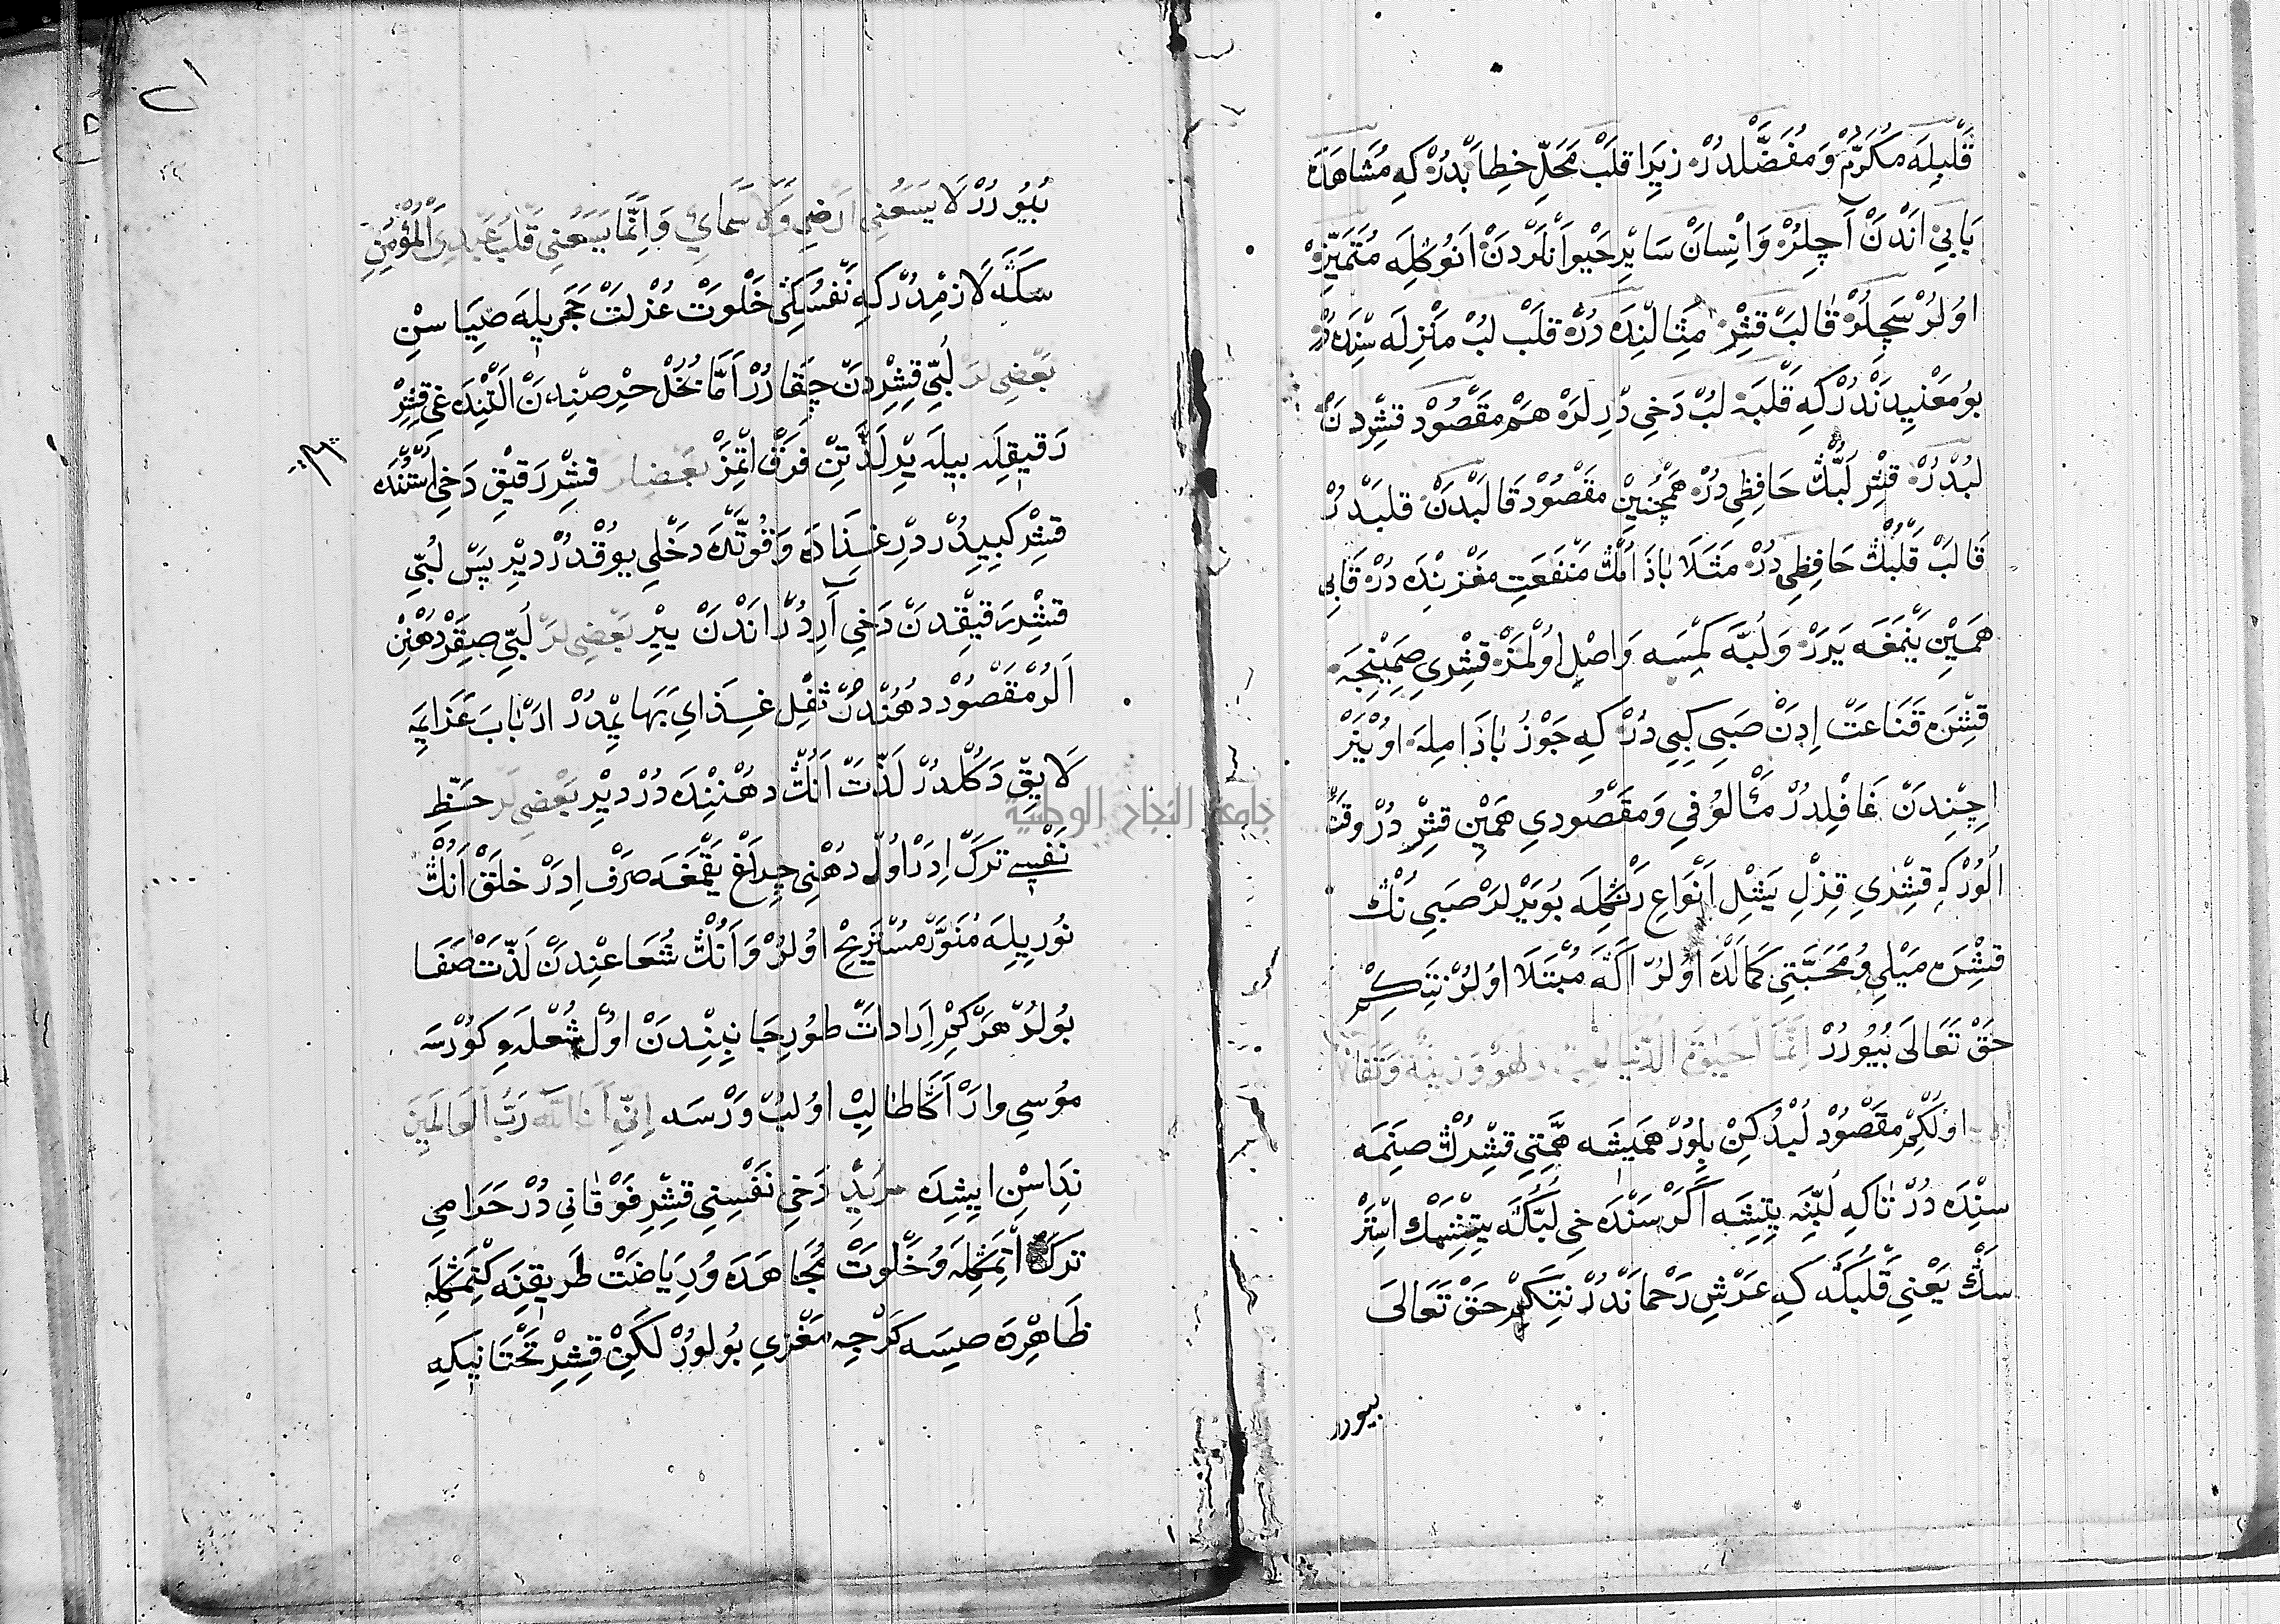 قَلْبِلَه مُكَرَّمْ وَ مُفَضَّلْدُرْ زِيرَا قَلْبْ مَحَلِّ خِطَابْدُرْ كِه مُشَاهَدَه
بَابِي اَنْدَنْ آچِلُرْ وَ اِنْسَانْ سَايِرْ حَيْوَانْلَرْدَنْ اَنُوكْلَه مُتَمَيِّزْ
اوُلُرْ سَچِلُرْ قَالَبْ قِشِرْ مِثَالِنْدَه دُرْ قَلْبْ لُبْ مَنْزِلَه سِنْدَه دُرْ
بُو مَعْنِيدَنْدُرْ كِه قَلْبَه لُبْ دَخِي دِرْلَرْ هَمْ مَقْصُودْ قِشِرْدَنْ
لُبْدُرْ قِشِرْ لُبُّڭْ حَافِظِي دُرْ هَمْچُنِينْ مَقْصُودْ قَالَبْدَنْ قَلْبْدُرْ
قَالَبْ قَلْبُڭْ حَافِظِي دُرْ مَثَلَا بَاذَامُڭْ مَنْفَعَتِ مَغْزِنْدَه دُرْ قَابِي
هَمِينْ يَنْمَغَه يَرَرْ وَ لُبَّه كِمْسَه وَاصِلْ اوُلْمَزْ قِشْرِي صِمَيِنْجَه
قِشْرَه قَنَاعَتْ اِدَنْ صَبِي كِبِي دُرْ كِه جَوْزُ بَاذَامِلَه اوُيْنَرْ
اِچِنْدَنْ غَافِلْدُرْ مَأْلُوفِي وَ مَقْصُودِي هَمِينْ قِشِرْ دُرْ وَقْتَ
اُلُورْ كِه قِشْرِي قِزِلْ يَشِلْ اَنْوَاعِ رَنْڭْلَه بُويَرْلَرْ صَبِي نُڭْ
قِشْرَه مَيْلِي وُ مَحَبَّتِي كَمَالْدَه اوُلُرْ اَڭَه مُبْتَلَا اوُلُرْ نِتَكِمْ
حَقْ تَعَالَى بُيُورُرْ اِنَّمَا الْحَيٰوةُ الدُّنْيَا لَعِبٌ وَلَهْوٌ وَ زِينَةٌ وَتَفَاخُرٌ
اوُلْكِمْ مَقْصُودْ لُبْدُكِنْ بِلُورْ هَمِيشَه هِمَّتِي قِشْرُڭْ صِنِمَه
سِنْدَه دُرْ تَاكِه لُبِّنَه يِتِيشَه اَكَرْ سَنْدَه خِي لُبُّڭَه يِتِشْمَكْ اِسْتَرْ
سَڭْ يَعْنِي قَلْبُڭَه كِه عَرْشِ رَحْمَانْدُرْ نِتَكِمْ حَقْ تَعَالَى
بيورر
٢١
بُيُورُرْ لَا يَسَعُنِي اَرْضِي وَلَا سَمَائِي وَ اِنَّمَا يَسَعُنِي قَلْبُ عَبْدِي الْمُؤْمِنِ
سَڭَه لَازِمْدُرْ كِه نَفْسُڭِي خَلْوَتْ عُزْلَتْ حَجَرِيلَه صِيَاسِنْ
بَعْضِيلَرْ لُبِّي قِشِرْدَنْ چِقَارُرْ اَمَّا نُخُلْ حِرْصِنْدَنْ اَلْتِنْدَه غِي قِشِرْ
رَقِيقِلَه بِيلَه يِرْ لَذَّتِنْ فَرْقْ اِتْمَزْ بَعْضِيلَرْ قِشْرِ رَقِيقِ دَخِي اُسْتُنْدَه
قِشِرْ كِبِيدُرْ دِرْ غِذَادَه وَ قُوَّتْدَه دَخْلِي يُوقْدُرْ دِيرْ پَسْ لُبِّي
قِشْرِ رَقِيقْدَنْ دَخِي آرِدُرْ اَنْدَنْ يِيْرْ بَعْضِيلَرْ لُبِّي صِقَرْ دُهْنِنْ
اَلُرْ مَقْصُودْ دُهْنُدُرْ ثُفْلِ غِذَايِ بَهَايِمْدُرْ اَرْبَابِ عَزَايِمَه
لَايِقْ دَكُلْدُرْ لَذَّتْ اَنُڭْ دُهْنِنْدَه دُرْ دِيرْ بَعْضِيلَرْ حَظِّ
نَفْسِي تَرْكْ اِدَرْ اوُلْ دُهْنِي چِرَاغْ يَقْمَغَه صَرْفْ اِدَرْ خَلْقْ اَنُڭْ
نُورِيلَه مُنَوَّرْ مُسْتَرِيحْ اوُلُرْ وَ اَنُڭْ شُعَاعِنْدَنْ لَذَّتْ صَفَا
بُولُرْ هَرْكِمْ اِرَادَاتْ طُورِ جَانِبِنْدَنْ اوُلْ شُعْلَهءِ كُورْسَه
مُوسِي وَارْ اَڭَا طَالِبْ اوُلُبْ وَرْسَه اِنِّي اَنَا اللّٰه رَبُّ الْعَالَمِينَ
نِدَاسِنْ اِيشِدَه مُرِيدْ دَخِي نَفْسِنِي قِشْرِ فَوْقَانِي دُرْ حَرَامِي
تَرْكْ اِتْمَڭْلَه وُ خَلْوَتْ مُجَاهَدَه وُ رِيَاضَتْ طَرِيقِنَه كِتْمَڭْلَه
ظَاهِرَه صِيسَه كَرْچِه مَغْزِي بُولُورْ لَكِنْ قِشِرْ تَحْتَانِيكِه